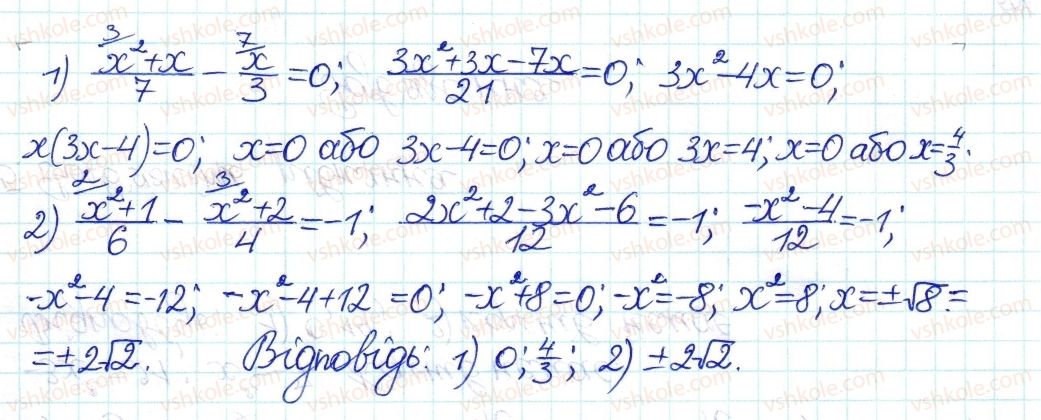 1) (x²+x)/7 ³⁄ − x/3 ⁷⁄ = 0; (3x²+3x−7x)/21 = 0; 3x²−4x=0;
x(3x−4)=0; x=0 або 3x−4=0; x=0 або 3x=4; x=0 або x=4/3.
2) (x²+1)/6 ²⁄ − (x²+2)/4 ³⁄ = −1; (2x²+2−3x²−6)/12 = −1; (−x²−4)/12 = −1;
−x²−4=−12; −x²−4+12=0; −x²+8=0; −x²=−8; x²=8; x=±√8=
=±2√2. Відповідь: 1) 0; 4/3; 2) ±2√2.